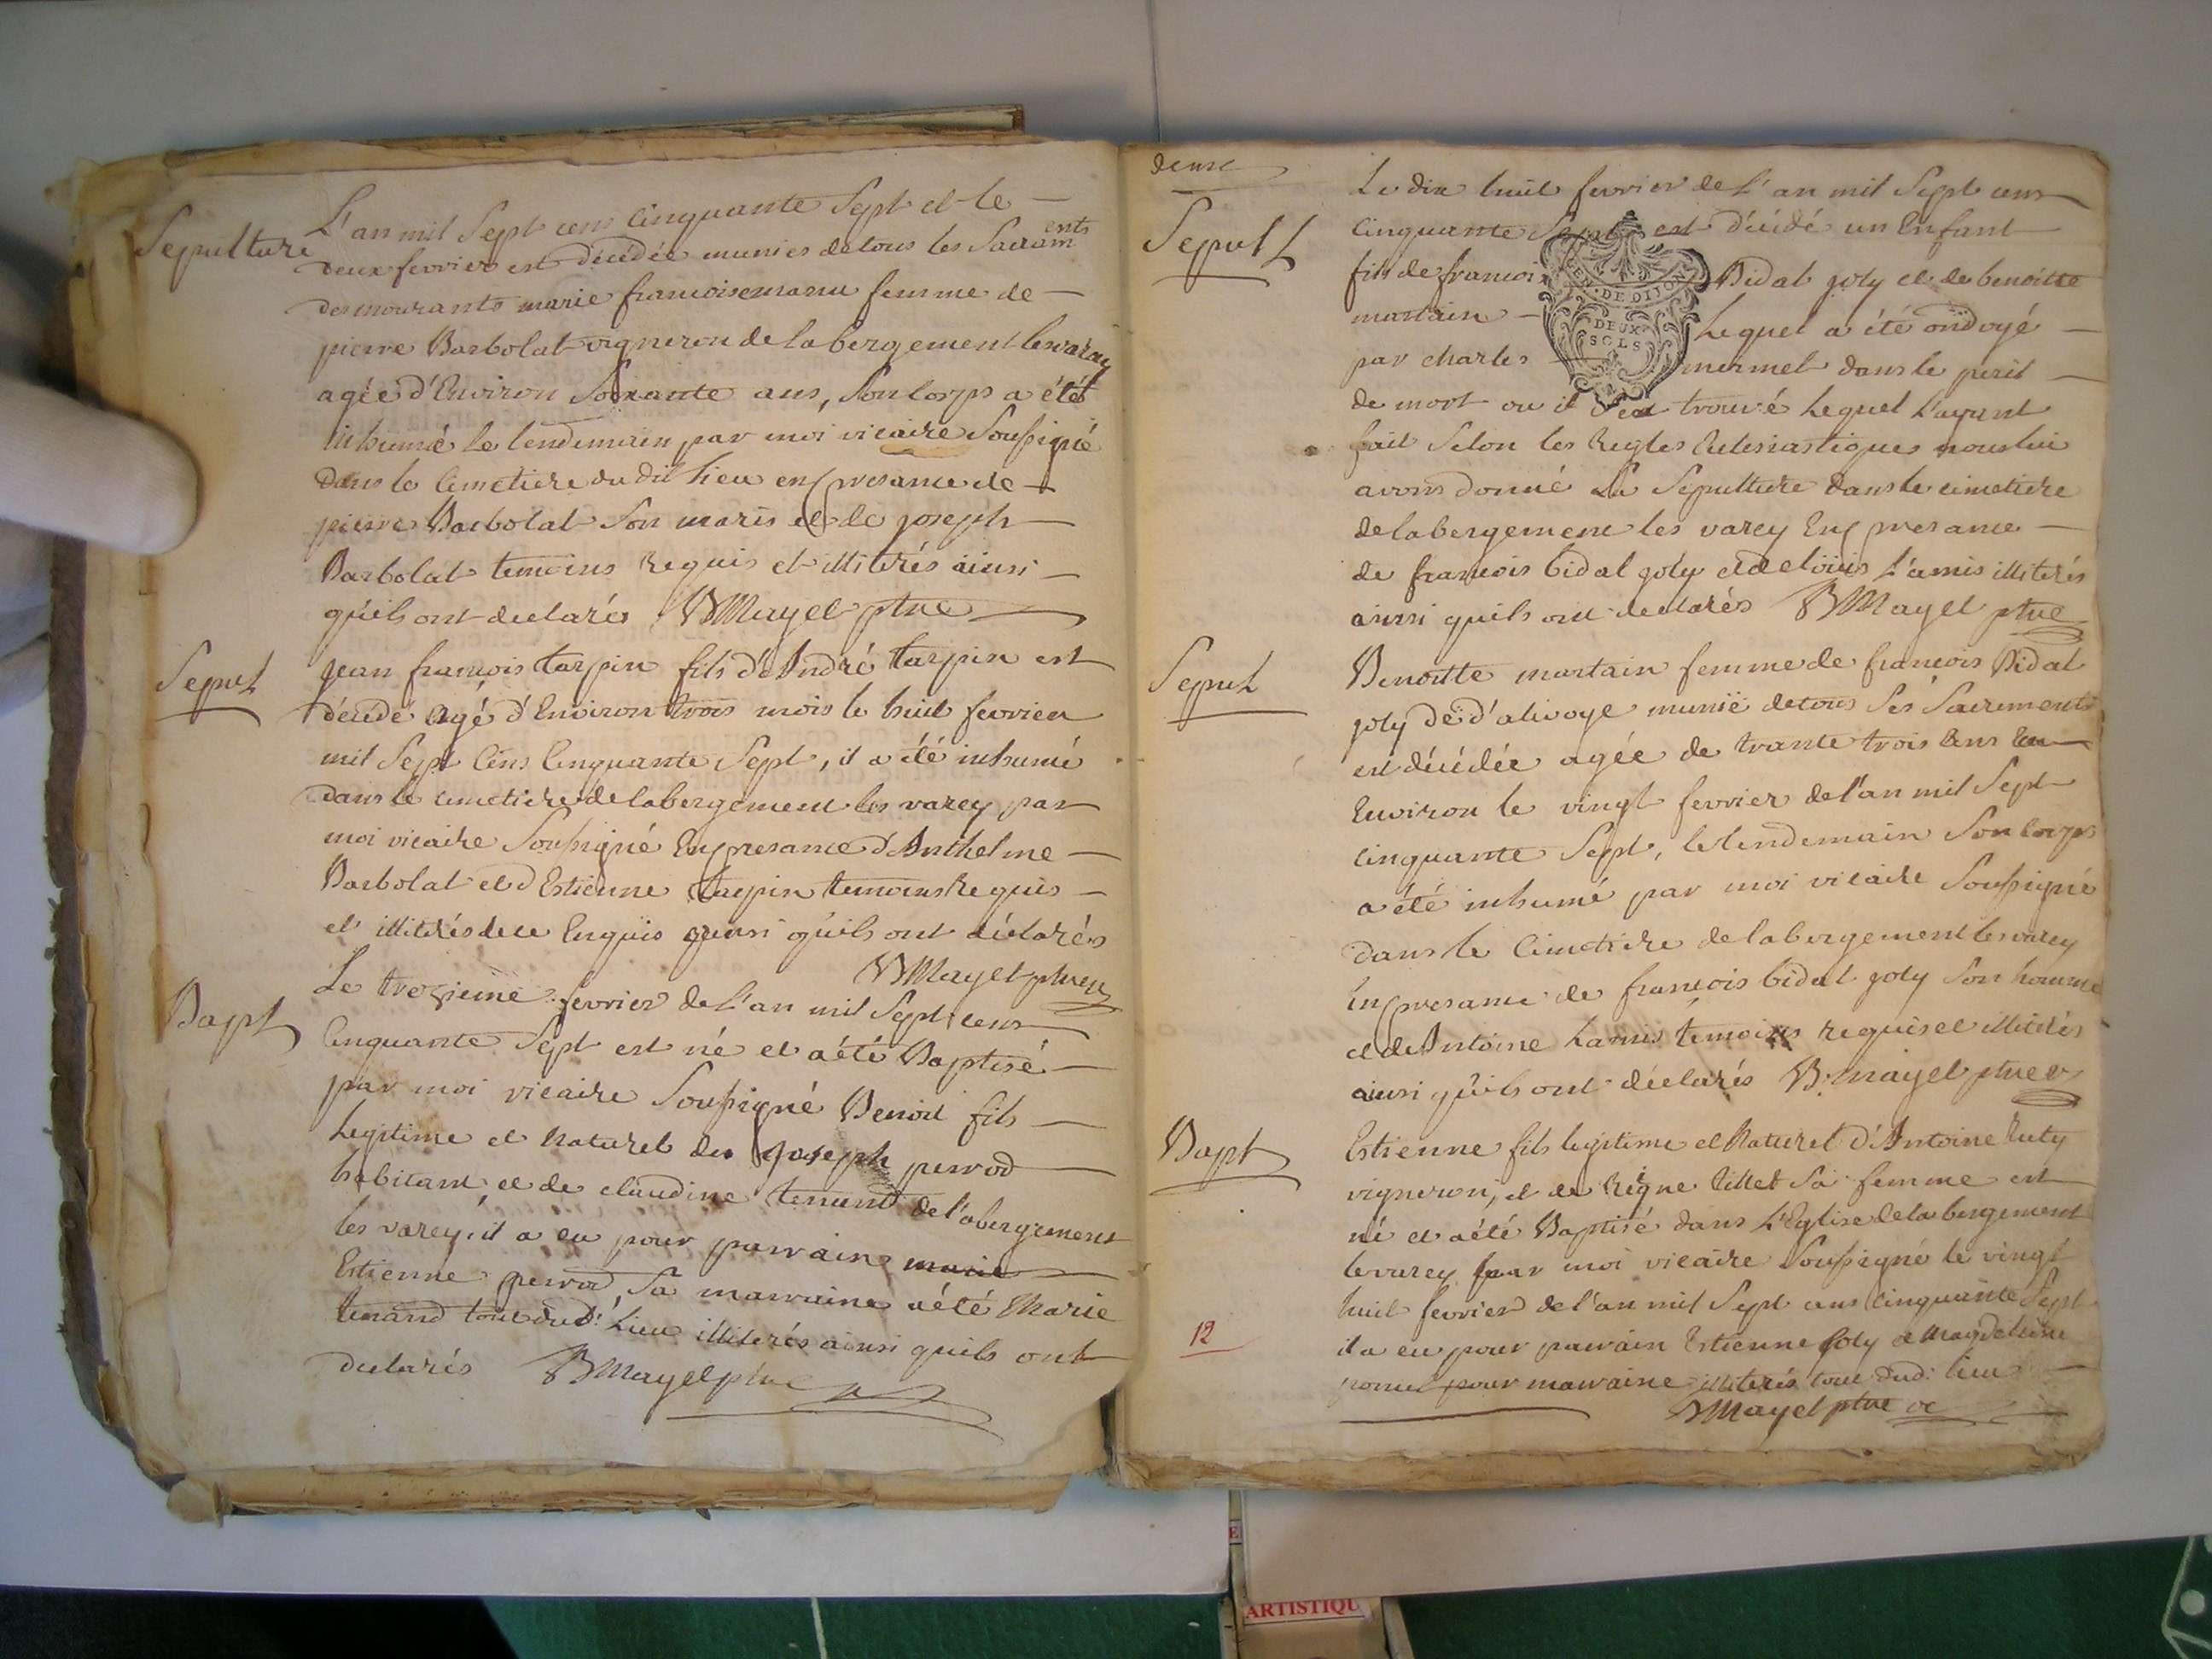 Sepulture
L'an mil Sept cens Cinquante Sept et le
deux fevrier est décédée munies de tous les Sacram ents
des mourants marie francoise femme de
pierre Barbolat vigneron de labergement les varay
agée d'Environ Soixante ans, Son Corps a été
inhumé Le lendemain par moi vicaire Soussigné
dans le Cimetiere du dit Lieu en presance de
pierre Barbolat Son maris et de joseph
Barbolat temoins Requis et illiterés ainsi
quils ont declarés BMayet ptre
Sepult
jean francois tarpin fils d'André tarpin est
décédé agé d'Environ trois mois le huit fevrier
mil Sept Cens Cinquante Sept, il a été inhumé
dans le cimetiere de labergement les varey par
moi vicaire Soussigné En presance d'Anthelme
Barbolat et d Estienne tarpin temoins Requis
et illiterés de ce Enquis ainsi quils ont déclarés
BMayet ptre
Bapt
Le trezieme fevrier de L'an mil Sept cens
Cinquante Sept est né et a été Baptisé
par moi vicaire Soussigné Benoit fils
Legitime et Naturel de joseph perrod
habitant et de claudine tenand de l'abergement
les varey, il a eu pour parrain marie
Estienne perrod, Sa marraine a été Marie
tenand tout dud: Lieu illiterés ainsi quils ont
declarés BMayet ptre
deuse
Sepult
Le dix huit fevrier de L'an mil Sept cens
Cinquante Sept est décédé un Enfant
fils de francois Bidal joly et de benoitte
martain Lequel a été ondoyé
par charles mermet dans le peril
de mort ou il s'est trouvé Lequel L'ayant
fait Selon les Regles Eclesiastiques nous lui
avons donné La Sepulture dans le cimetiere
de labergement les varey En presance
de francois bidal joly et de loüis L'amis illiterés
ainsi quils ont declarés BMayet ptre
GEN. DE DIJON
DEUX
SOLS
Sepult
Benoitte martain femme de francois Bidal
joly de d'alivoye munië de tous Ses Sacrements
est décédée agée de trante trois ans
Environ le vingt fevrier de l'an mil Sept
cinquante Sept, le lendemain Son Corps
a été inhumé par moi vicaire Soussigné
dans le Cimetiere de labergement les varey
En presance de francois bidal joly Son homme
et de Antoine Lamis temoins requis et illiterés
ainsi quils ont déclarés B: mayet ptre
Bapt
Estienne fils legitime et Naturel d'Antoine Ruty
vigneron, et de Reigne tillet Sa femme est
né et a été Baptisé dans L'Eglise de labergement
le varey par moi vicaire Soussigné le vingt
huit fevrier de l'an mil Sept cens Cinquante Sept
il a eu pour parrain Estienne joly et Magdeleine
pour marraine illiterés tout dud: lieu
BMayet ptre
12
ARTISTIQU